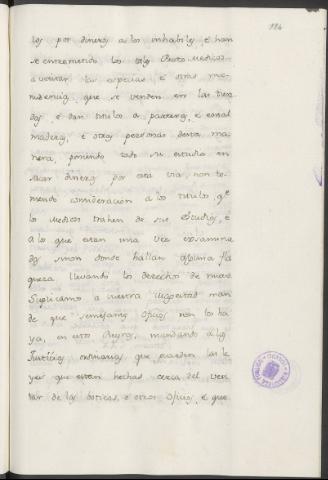 184
los por dineros a los inhabiles, e han
se entremetido los tales Proto Medicos
a visitar las especias e otras me-
decinas, que se venden en las tien
das, e dan titulos a parteras, e ensal
maderas, e otras personas desta ma
nera, poniendo todo su estudio en
sacar dineros por esta via, non to-
mando consideración a los titulos, qe
los Medicos trahen de sus Estudios, e
a los que estan una vez examina
dos sinon donde hallan alguna fla
queza llevando los derechos de nuevo
Suplicamos a vuestra Magestad man
de que semejantes oficios non los ha
ya, en estos Reynos, mandando a las
Justicias, ordinarias que guarden las le
yes que estan hechas cerca del visi
tar de las boticas, e otros oficios, e que